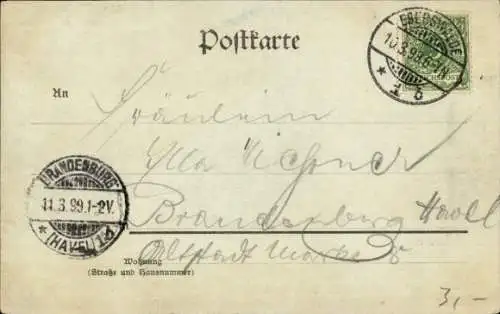 Postkarte
EBERSWALDE
10.3.99.6-7N.
* 1 b
REICHSPOST
An
Fräulein
Ella
Brandenburg Havel
Altstadt Markt 8
BRANDENBURG
11.3.99.1-2V.
* (HAVEL)1d
Wohnung
(Straße und Hausnummer)
3,-